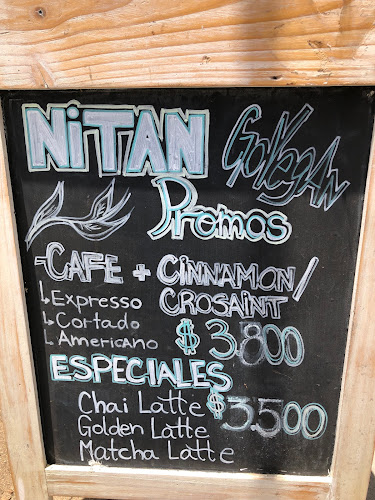 NiTAN GoVegAN
Promos
CAFE + CiNNAMON/
CROSAINT
Expresso
Cortado
Americano
$3.800
ESPECIALES
Chai Latte $3.500
Golden Latte
Matcha Latte